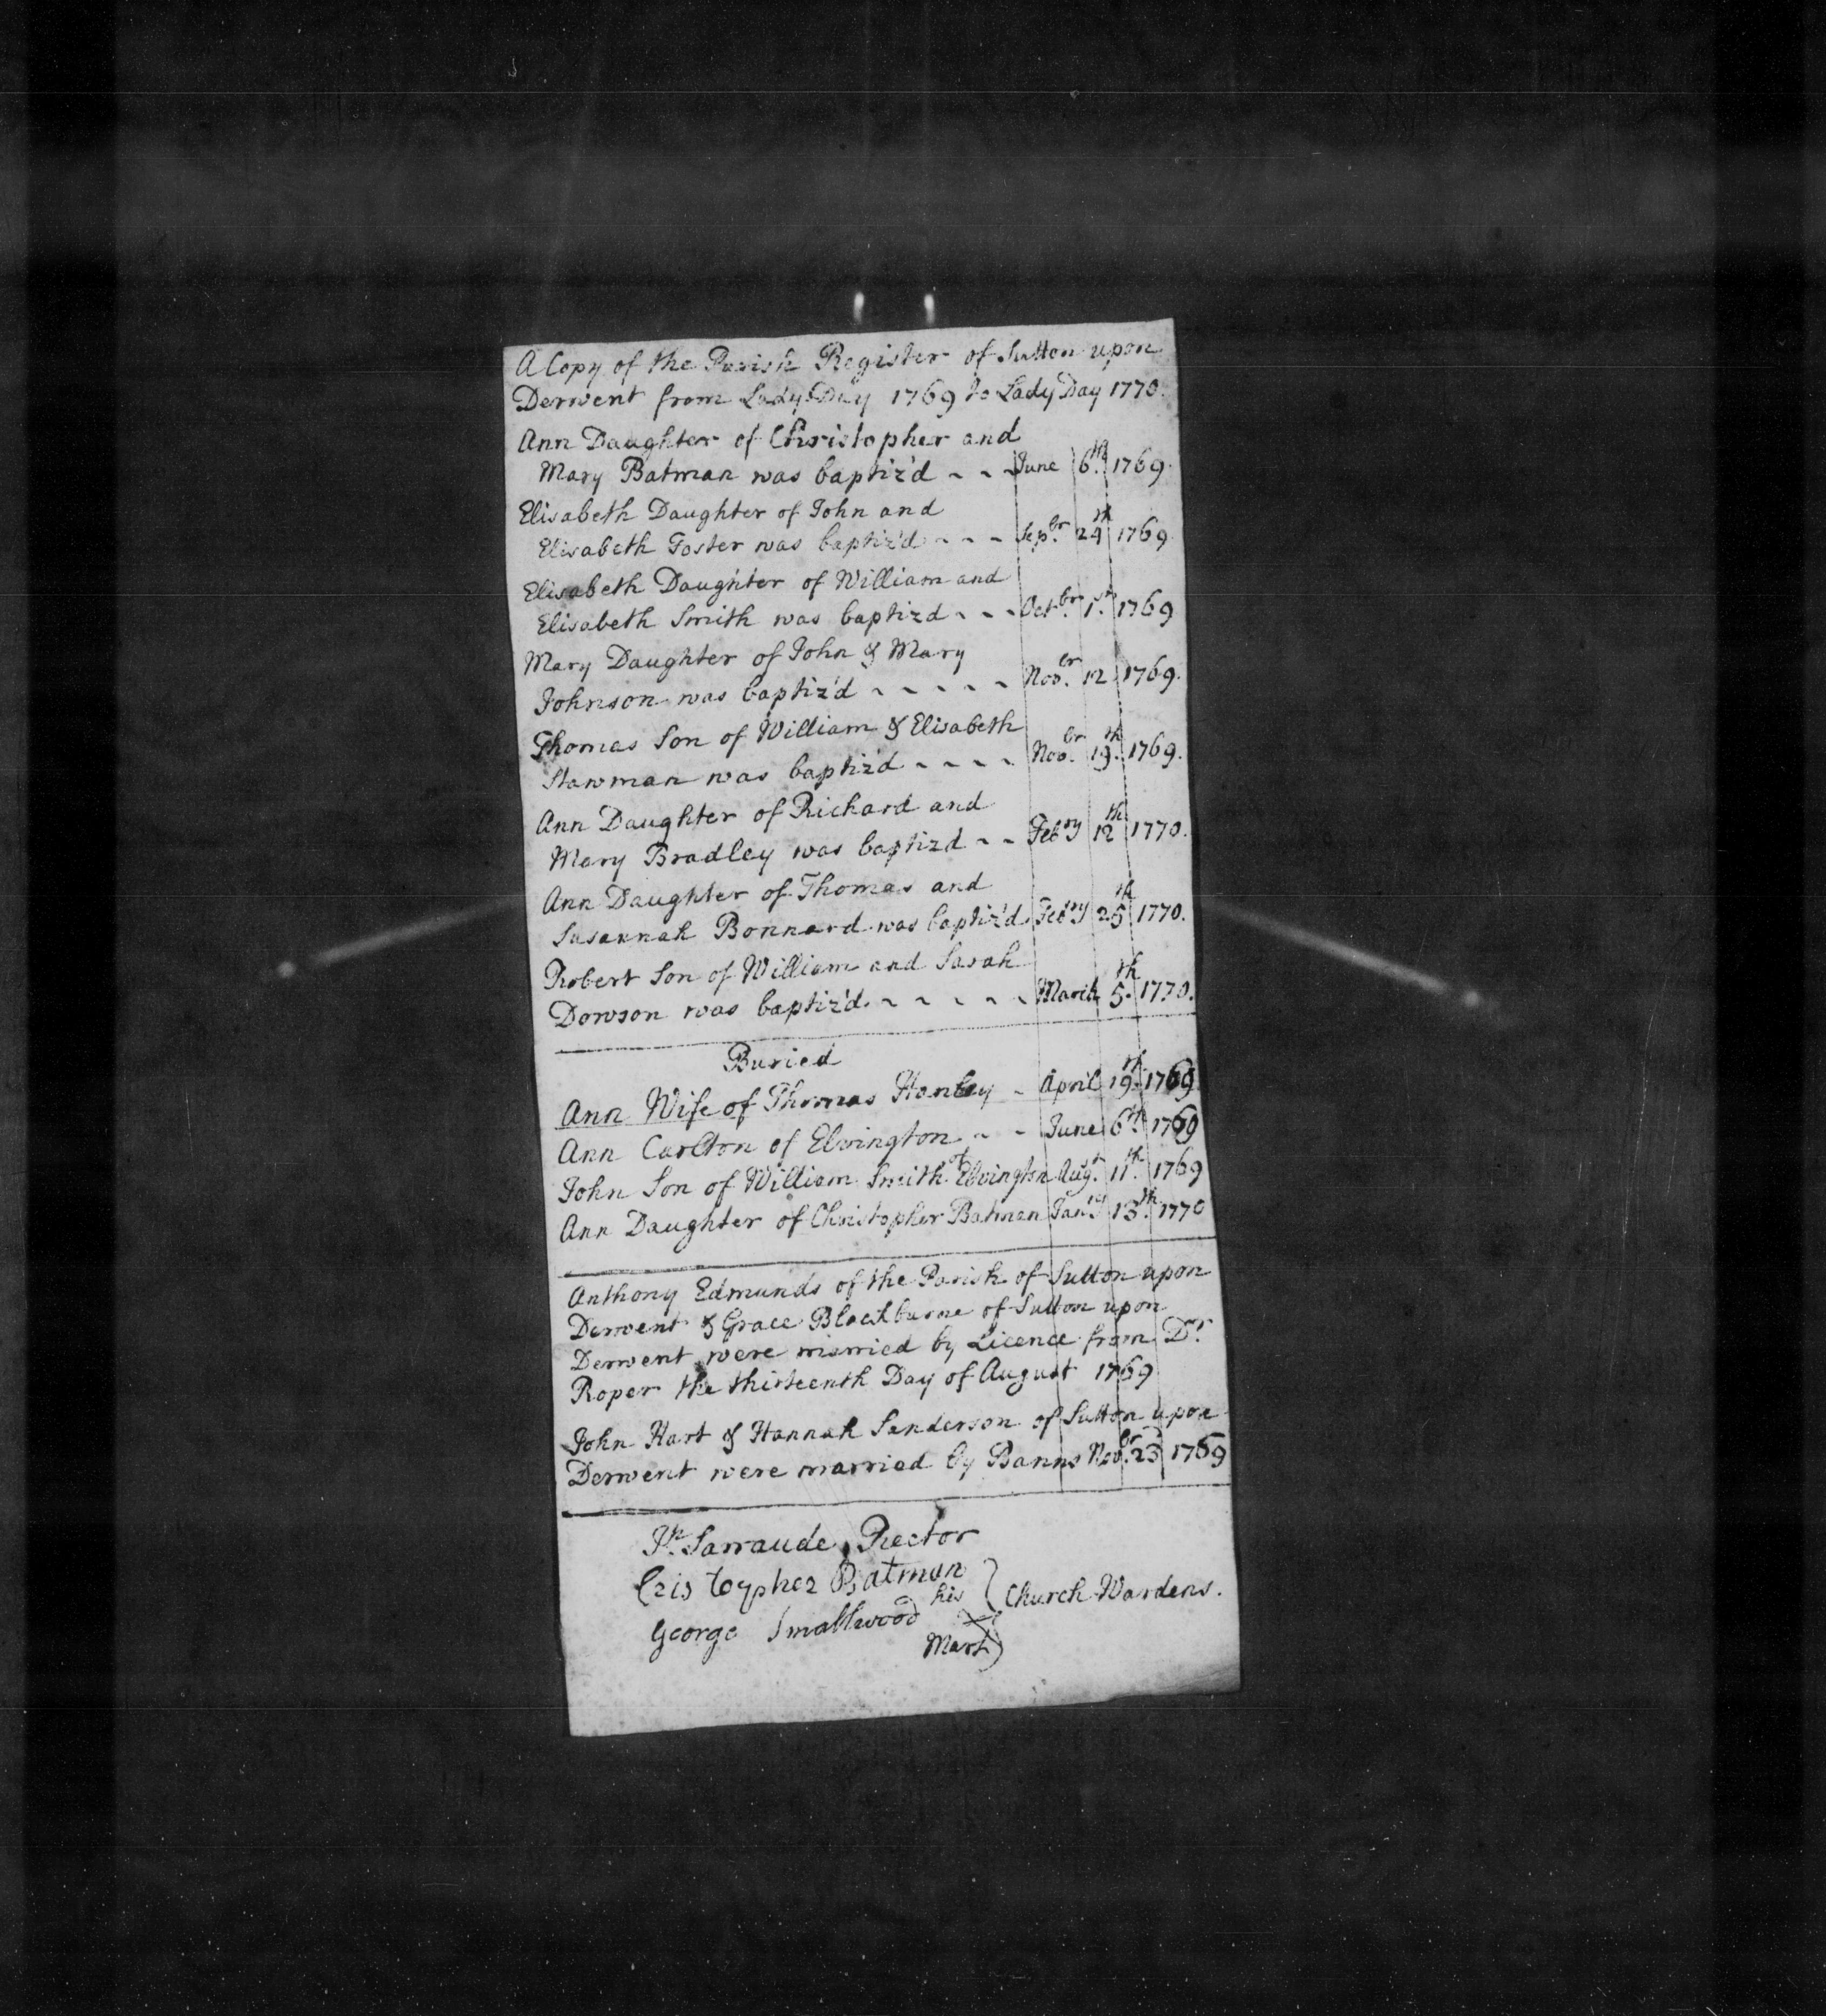 A Copy of the Parish Register of Sutton upon
Derwent from Lady Day 1769 to Lady Day 1770.
Ann Daughter of Christopher and
Mary Batman was baptiz'd - - June 6th. 1769.
Elisabeth Daughter of John and
Elisabeth Foster was baptiz'd - - - Sepbr. 24th 1769
Elisabeth Daughter of William and
Elisabeth Smith was baptizd - - - Octbr. 1st. 1769
Mary Daughter of John & Mary
Johnson was baptiz'd - - - - - Novbr. 12 1769.
Thomas Son of William & Elisabeth
Hawman was baptiz'd - - - - Novbr. 19th. 1769.
Ann Daughter of Richard and
Mary Bradley was baptizd - - Febry 12th 1770.
Ann Daughter of Thomas and
Susannah Bonnard was baptiz'd Febry 25th 1770.
Robert Son of William and Sarah
Dowson was baptiz'd. - - - - - March 5th. 1770.
Buried
Ann Wife of Thomas Hanley - April 19th. 1769
Ann Carlton of Elvington - - June 6th. 1769
John Son of William Smith of Elvington Augt. 11th. 1769
Ann Daughter of Christopher Batman Janry 13th. 1770
Anthony Edmunds of the Parish of Sutton upon
Derwent & Grace Blackburne of Sutton upon
Derwent were married by Licence from Dr.
Roper the thirteenth Day of August 1769
John Hart & Hannah Sanderson of Sutton upon
Derwent were married by Banns Novbr. 23 1769
Jn. Sarraude, Rector
Cristoypher Batman
his
Church Wardens.
George Smallwood
Mark